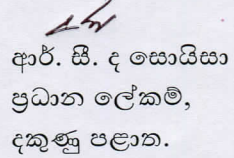 ආර්. සී. ද සොයිසා
ප්‍රධාන ලේකම්,
දකුණු පළාත.